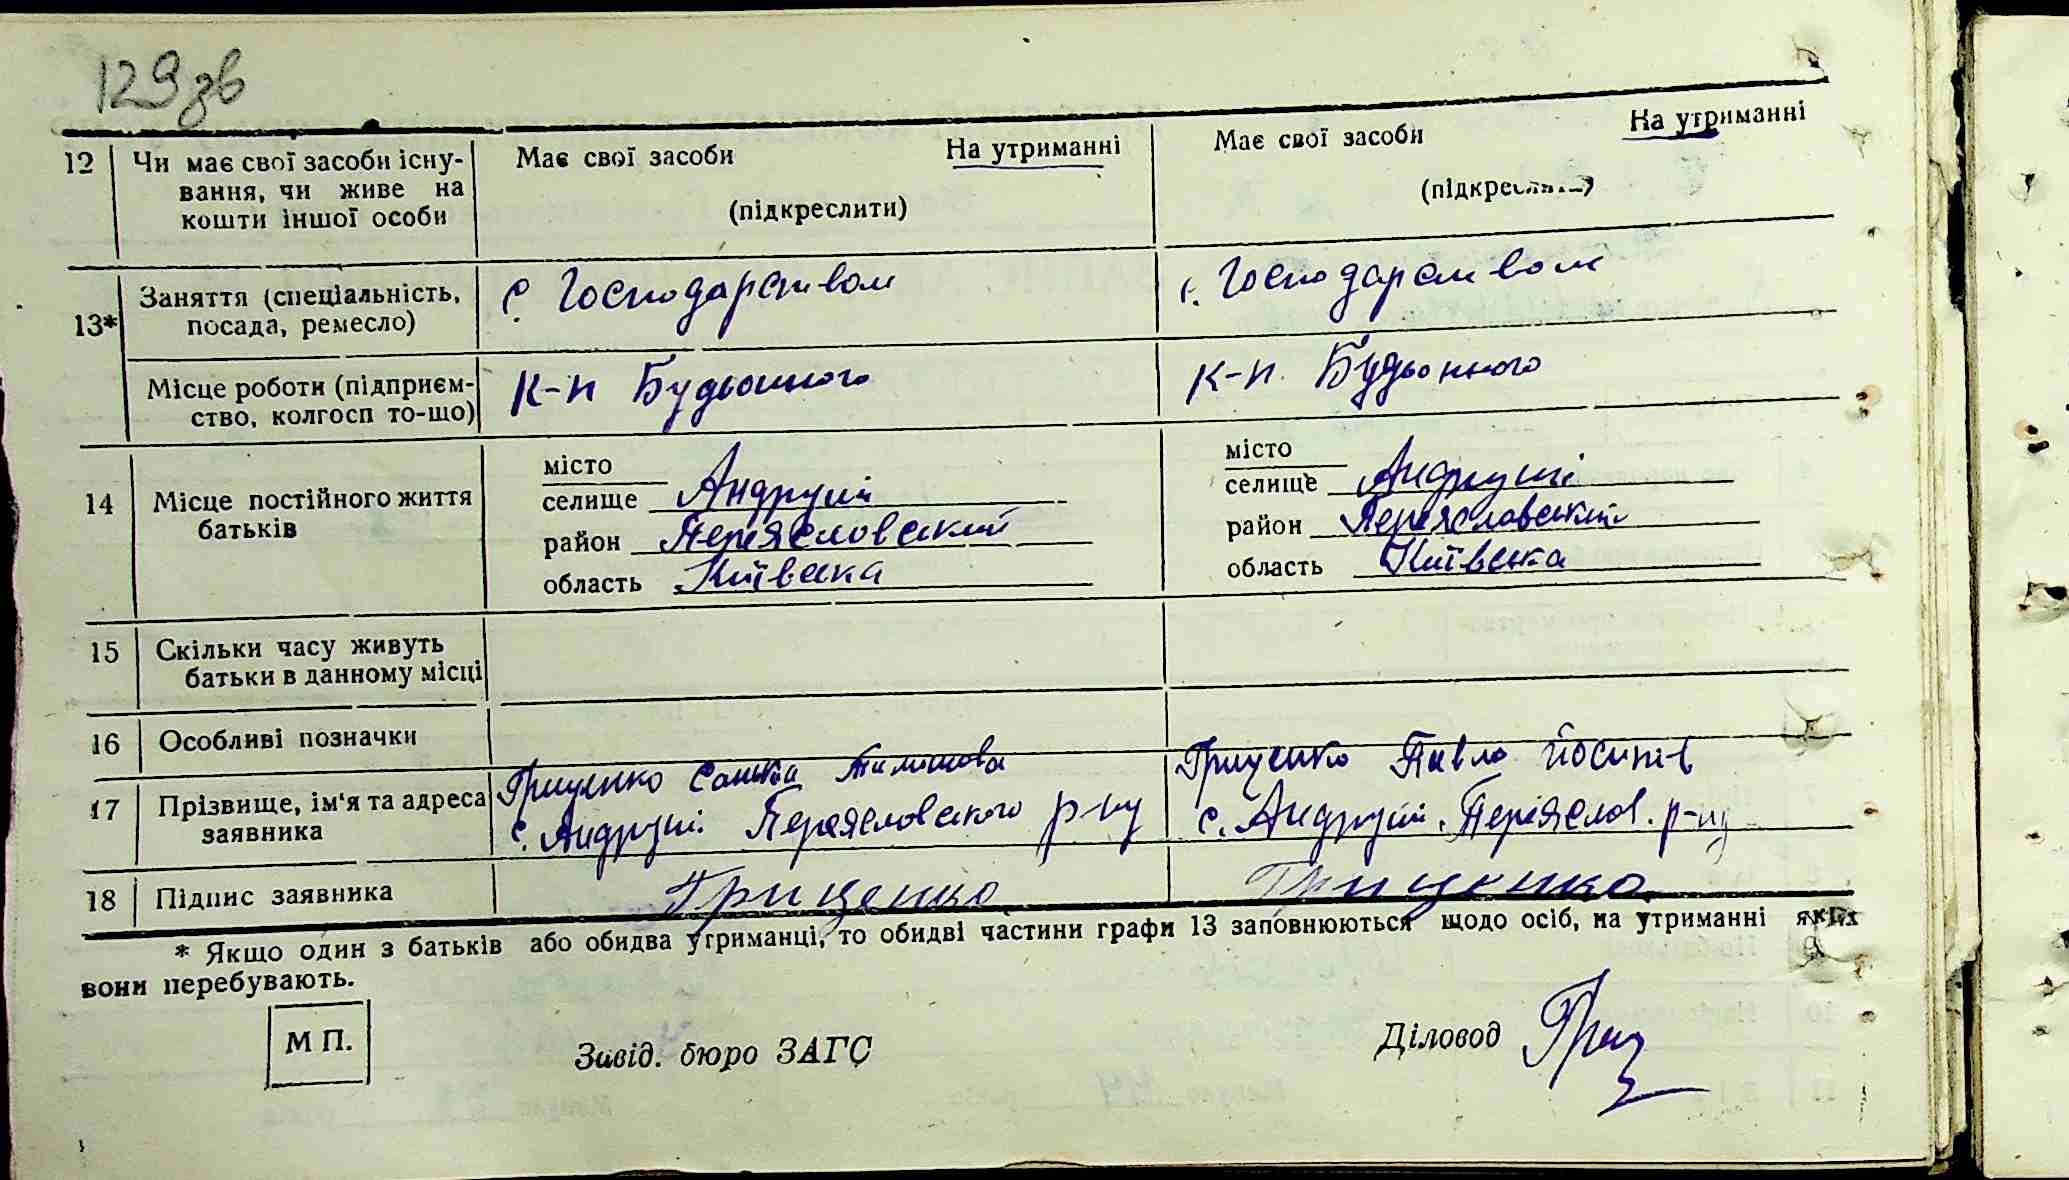 129зв
12 Чи має свої засоби існу- Має свої засоби На утриманні Має свої засоби На утриманні
вання, чи живе на
кошти іншої особи (підкреслити) (підкреслити)
13* Заняття (спеціальність, с. Господарством с. Господарством
посада, ремесло)
Місце роботи (підприєм- к-п Будьонного к-п. Будьонного
ство, колгосп то-що)
14 Місце постійного життя
батьків
місто
селище Андруші
район Переясловский
область Київска
місто
селище Андруші
район Переясловский
область Київска
15 Скільки часу живуть
батьки в данному місці
16 Особливі позначки
17 Прізвище, ім'я та адреса Гриценко Тимошова Гриценко Павло Йосипів
заявника с. Андруші. Переясловского р-ну с. Андруші. Переяслов. р-ну
18 Підпис заявника Гриценко Гриценко
* Якщо один з батьків або обидва утриманці, то обидві частини графи 13 заповнюються щодо осіб, на утриманні яких
вони перебувають.
М П. Завід. бюро ЗАГС Діловод Гриц